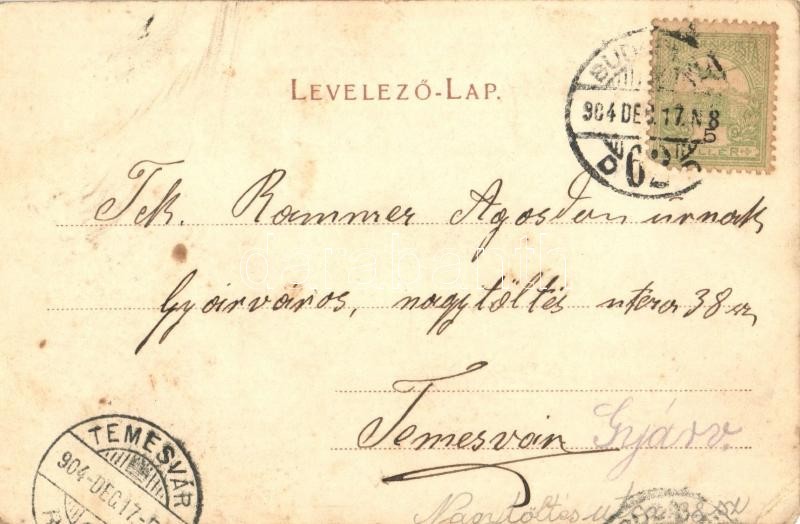 LEVELEZŐ-LAP.
BUDAPEST
904 DEC. 17. N 8
5
62
Tek. Rammer Agoston úrnak
Gyárváros, nagytöltés utca 38 sz
Temesvár Gyárv.
TEMESVÁR
904-DEC.17-
Nagytöltés utca 38 sz
darabanth